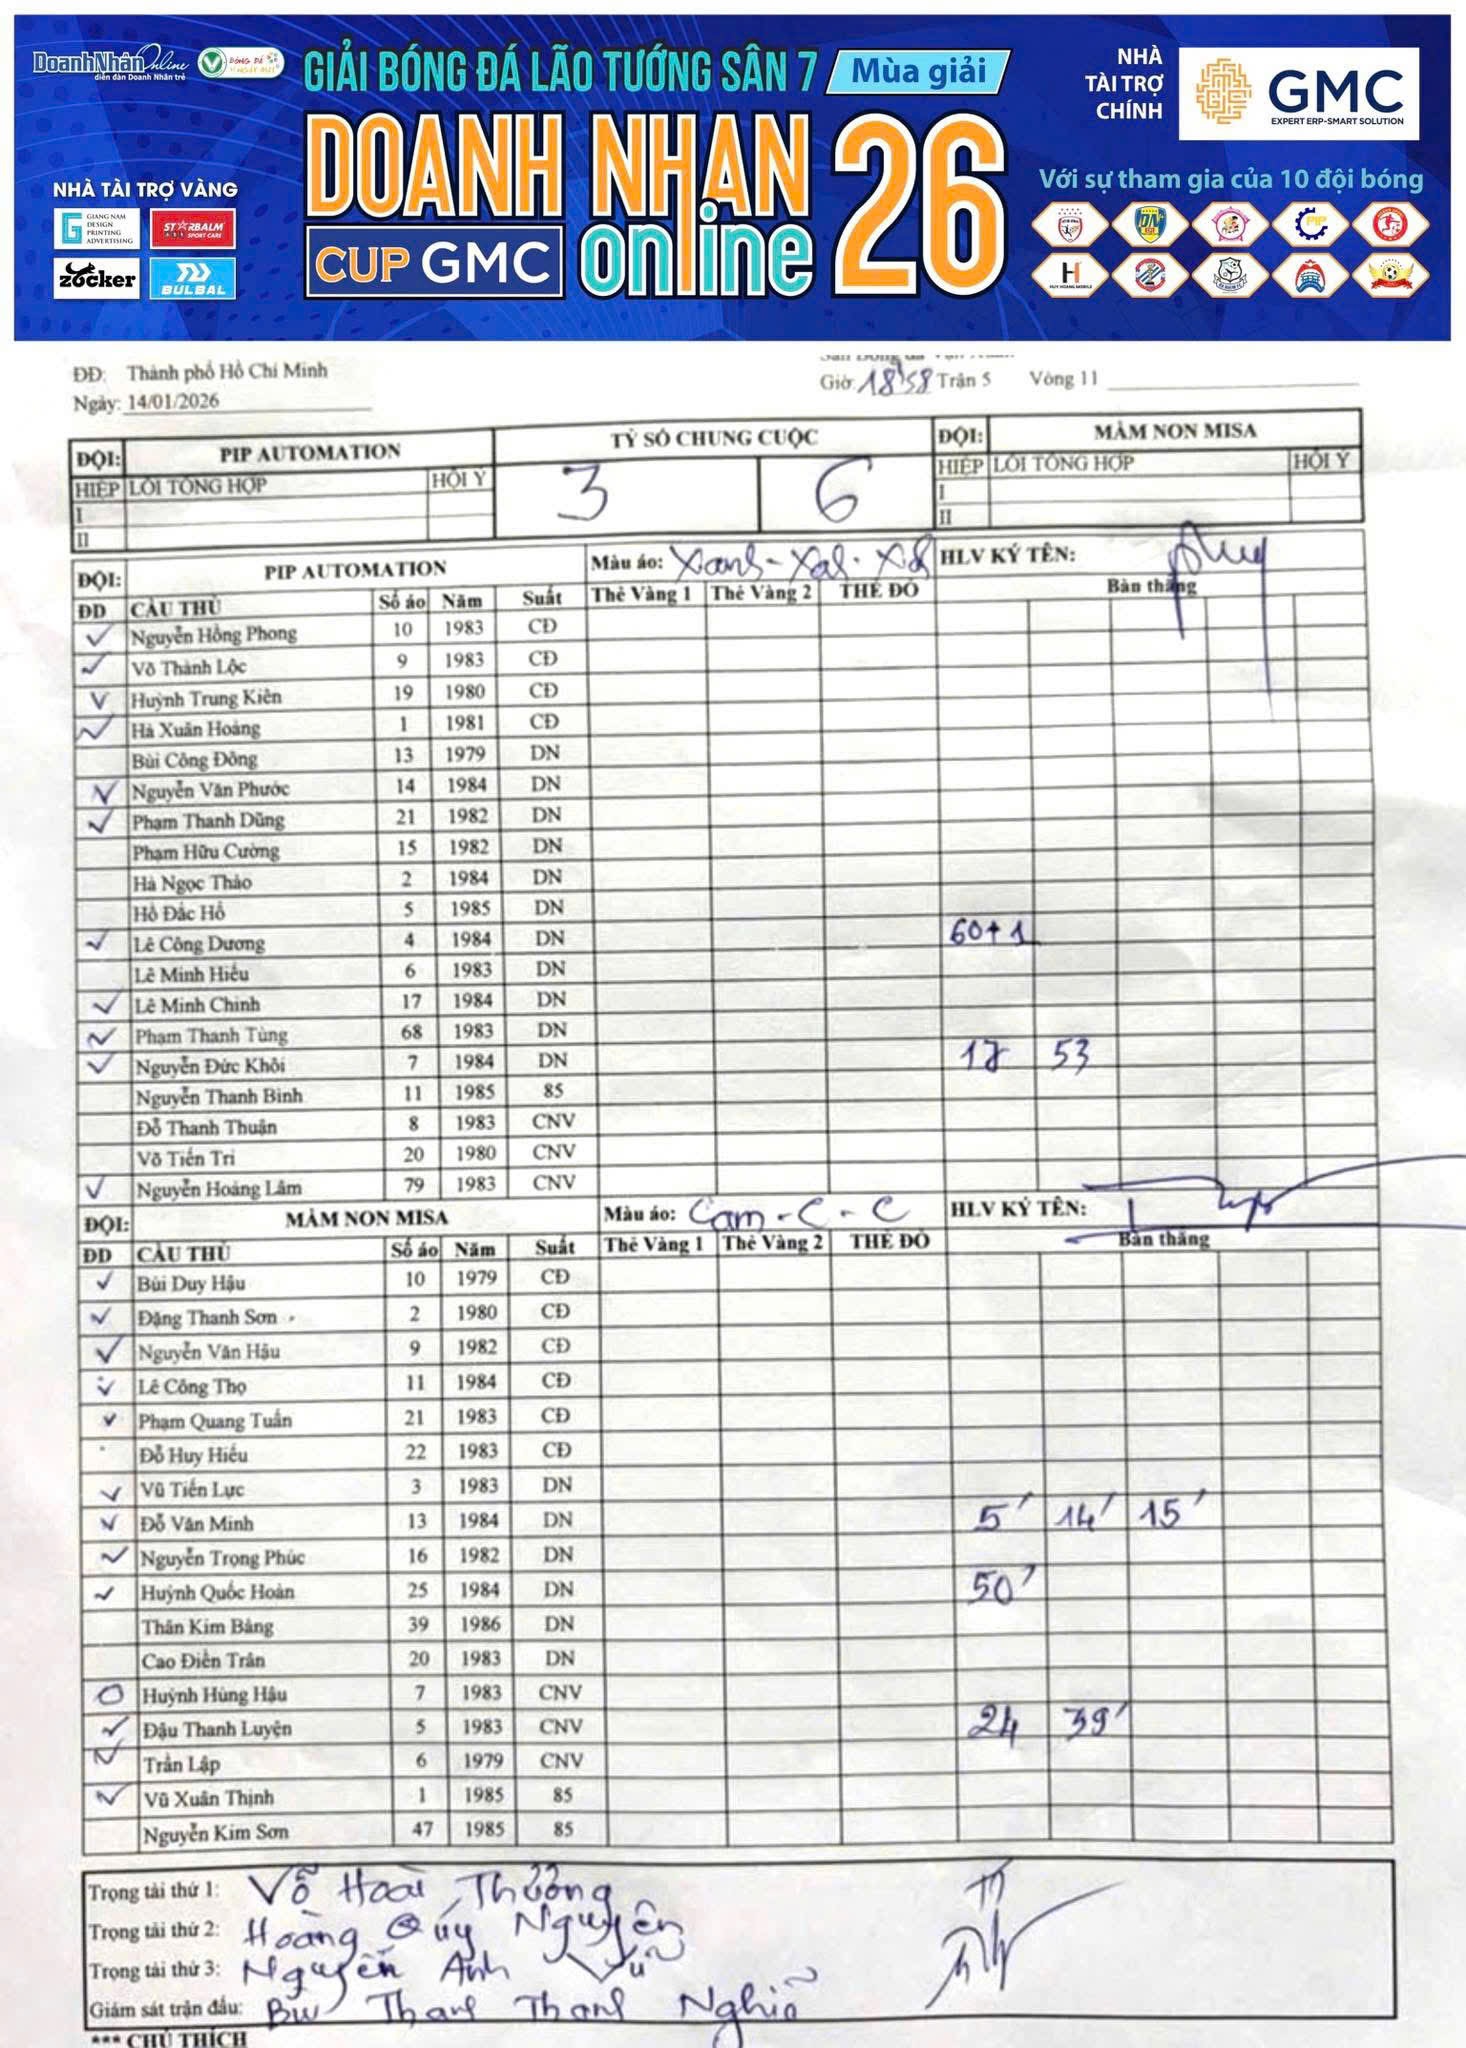 DoanhNhânOnline
diễn đàn Doanh Nhân trẻ
BÓNG ĐÁ
GIẢI BÓNG ĐÁ LÃO TƯỚNG SÂN 7 Mùa giải
DOANH NHAN online 26
CUP GMC
NHÀ TÀI TRỢ VÀNG
GIANG NAM DESIGN PRINTING ADVERTISING
STARBALM SPORT CARE
zocker
BULBAL
NHÀ TÀI TRỢ CHÍNH
GMC
EXPERT ERP-SMART SOLUTION
Với sự tham gia của 10 đội bóng
PIP
HUY HOANG MOBILE
ĐĐ: Thành phố Hồ Chí Minh
Giờ: 18h58 Trận 5 Vòng 11
Ngày: 14/01/2026
ĐỘI: PIP AUTOMATION TỶ SỐ CHUNG CUỘC ĐỘI: MẦM NON MISA
HIỆP LỖI TỔNG HỢP HỘI Ý 3 6 HIỆP LỖI TỔNG HỢP HỘI Ý
I I
II II
ĐỘI: PIP AUTOMATION Màu áo: Xanh - Xal - HLV KÝ TÊN:
ĐD CẦU THỦ Số áo Năm Suất Thẻ Vàng 1 Thẻ Vàng 2 THẺ ĐỎ Bàn thắng
Nguyễn Hồng Phong 10 1983 CĐ
Võ Thành Lộc 9 1983 CĐ
Huỳnh Trung Kiên 19 1980 CĐ
Hà Xuân Hoàng 1 1981 CĐ
Bùi Công Đông 13 1979 DN
Nguyễn Văn Phước 14 1984 DN
Phạm Thanh Dũng 21 1982 DN
Phạm Hữu Cường 15 1982 DN
Hà Ngọc Thảo 2 1984 DN
Hồ Đắc Hồ 5 1985 DN
Lê Công Dương 4 1984 DN 60+1
Lê Minh Hiếu 6 1983 DN
Lê Minh Chinh 17 1984 DN
Phạm Thanh Tùng 68 1983 DN
Nguyễn Đức Khôi 7 1984 DN 53
Nguyễn Thanh Bình 11 1985 85
Đỗ Thanh Thuận 8 1983 CNV
Võ Tiến Trí 20 1980 CNV
Nguyễn Hoàng Lâm 79 1983 CNV
ĐỘI: MẦM NON MISA Màu áo: Cam - C - C HLV KÝ TÊN:
ĐD CẦU THỦ Số áo Năm Suất Thẻ Vàng 1 Thẻ Vàng 2 THẺ ĐỎ Bàn thắng
Bùi Duy Hậu 10 1979 CĐ
Đặng Thanh Sơn 2 1980 CĐ
Nguyễn Văn Hậu 9 1982 CĐ
Lê Công Thọ 11 1984 CĐ
Phạm Quang Tuấn 21 1983 CĐ
Đỗ Huy Hiếu 22 1983 CĐ
Vũ Tiến Lực 3 1983 DN
Đỗ Văn Minh 13 1984 DN 5' 14' 15'
Nguyễn Trọng Phúc 16 1982 DN
Huỳnh Quốc Hoàn 25 1984 DN 50'
Thân Kim Bảng 39 1986 DN
Cao Điền Trân 20 1983 DN
Huỳnh Hùng Hậu 7 1983 CNV
Đậu Thanh Luyện 5 1983 CNV 24 39'
Trần Lập 6 1979 CNV
Vũ Xuân Thịnh 1 1985 85
Nguyễn Kim Sơn 47 1985 85
Trọng tài thứ 1: Võ Hoài Thương
Trọng tài thứ 2: Hoàng Quý Nguyên
Trọng tài thứ 3: Nguyễn Anh Vũ
Giám sát trận đấu: Bùi Thanh Thanh Nghĩa
*** CHÚ THÍCH